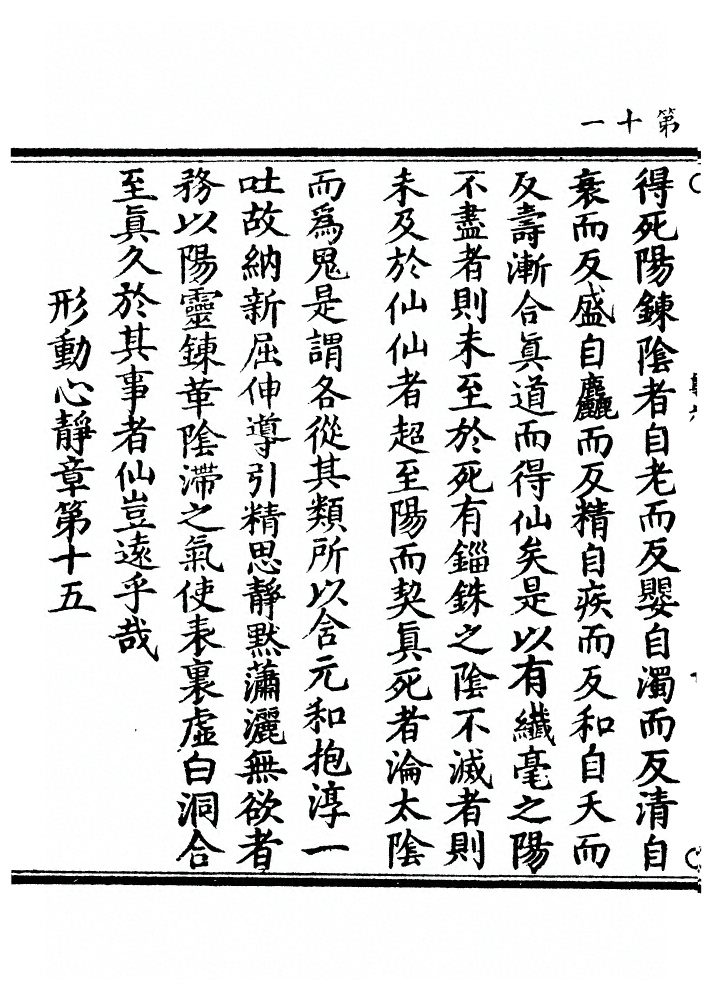 第十一
得死陽鍊陰者自老而反嬰自濁而反清自
衰而反盛自麤而反精自疾而反和自夭而
反壽漸合眞道而得仙矣是以有纖毫之陽
不盡者則未至於死有錙銖之陰不滅者則
未及於仙仙者超至陽而契眞死者淪太陰
而爲鬼是謂各從其類所以含元和抱淳一
吐故納新屈伸導引精思靜默瀟灑無欲者
務以陽靈鍊革陰滯之氣使表裏虛白洞合
至眞久於其事者仙豈遠乎哉
形動心靜章第十五